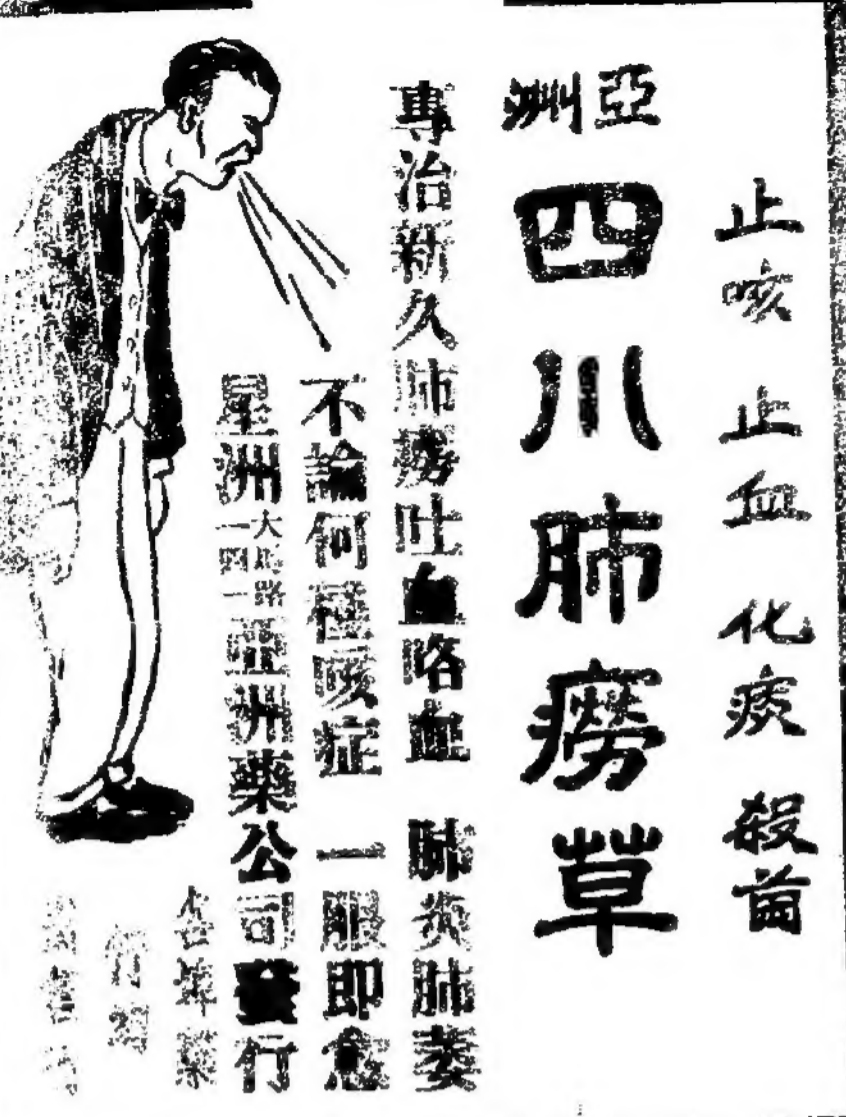 止咳 止血 化痰 殺菌
亞洲
四川肺癆草
專治新久肺癆吐血咯血 肺炎肺萎
不論何種咳症 一服即愈
星洲大馬路一四二亞洲藥公司發行
各埠藥